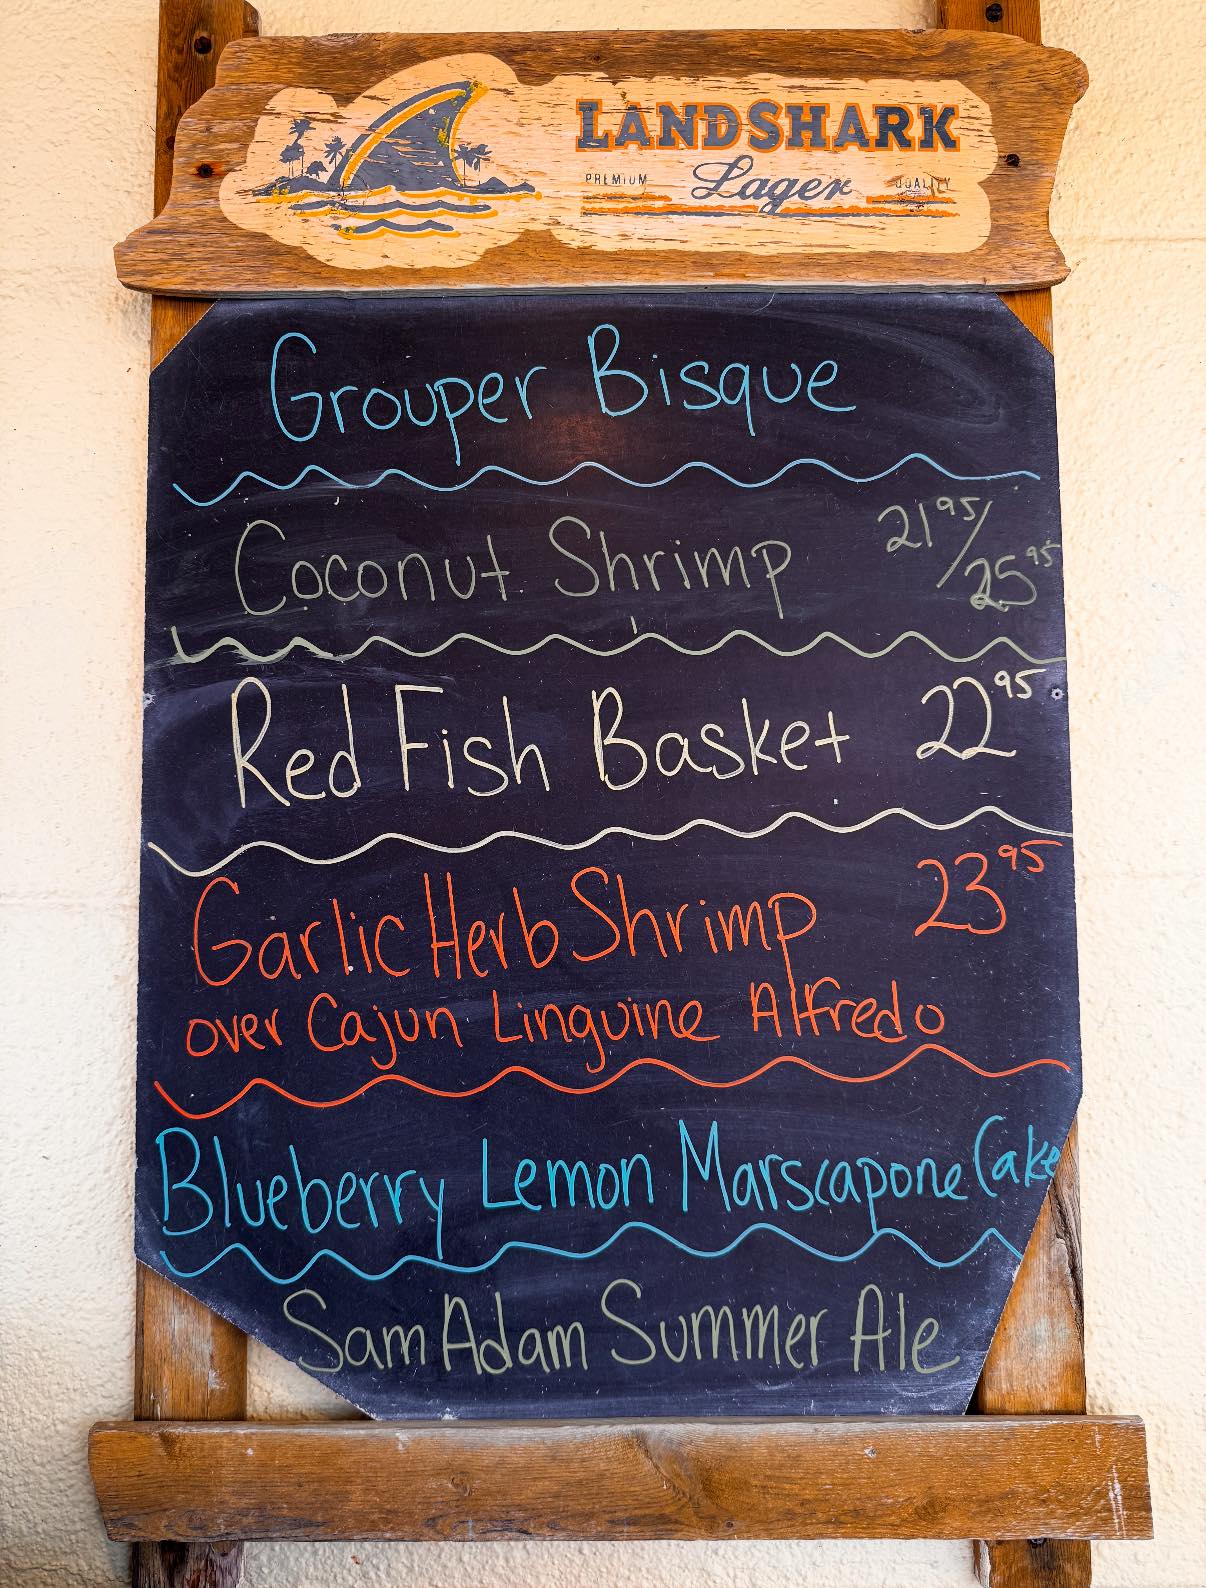 LANDSHARK
PREMIUM Lager QUALITY
Grouper Bisque
Coconut Shrimp 21 95/25 95
Red Fish Basket 22 95
Garlic Herb Shrimp 23 95
over Cajun Linguine Alfredo
Blueberry Lemon Marscapone Cake
Sam Adam Summer Ale